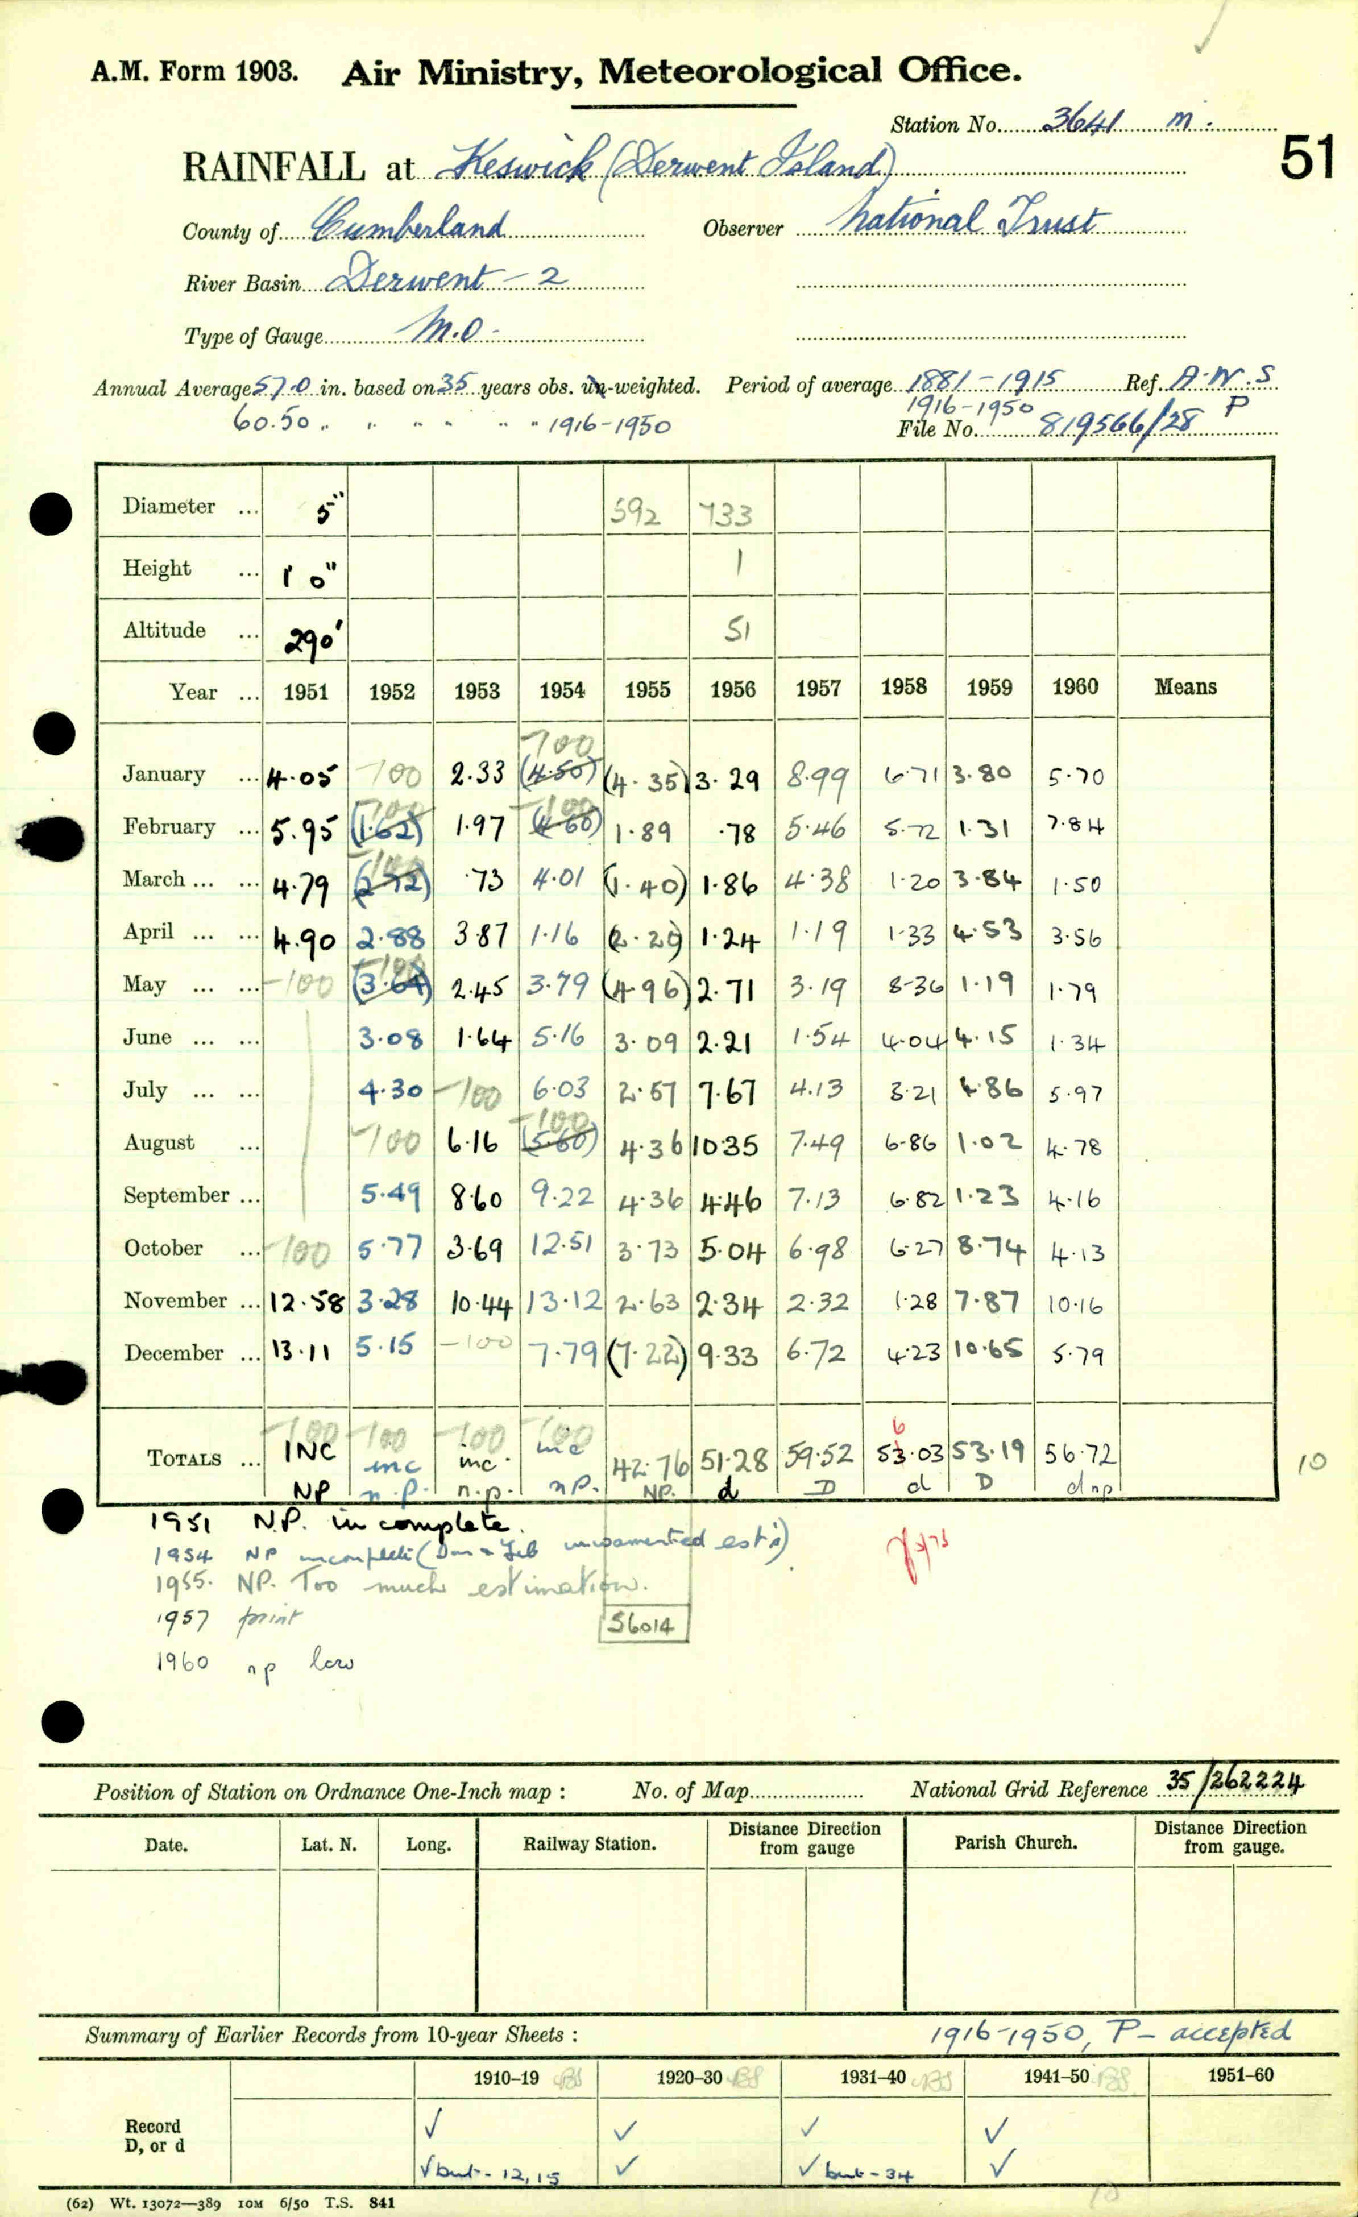 A.M. Form 1903. Air Ministry, Meteorological Office.
Station No. 3641 m.
51
RAINFALL at Keswick (Derwent Island)
County of Cumberland Observer National Trust
River Basin Derwent - 2
Type of Gauge M.O.
Annual Average 57.0 in. based on 35 years obs. un-weighted. Period of average 1881-1915 Ref. A.W.S.
60.50 " " " " " " 1916-1950 1916-1950 P
File No. 819566/28
Diameter ... 5" 592 733
Height ... 1' 0" 1
Altitude ... 290' 51
Year ... 1951 1952 1953 1954 1955 1956 1957 1958 1959 1960 Means
-100
January ... 4.05 -100 2.33 (4.50) (4.35) 3.29 8.99 6.71 3.80 5.70
-100 -100
February ... 5.95 (1.62) 1.97 (4.60) 1.89 .78 5.46 5.72 1.31 7.84
-100
March ... ... 4.79 (2.72) .73 4.01 (1.40) 1.86 4.38 1.20 3.84 1.50
April ... ... 4.90 2.88 3.87 1.16 (2.20) 1.24 1.19 1.33 4.53 3.56
-100
May ... ... -100 (3.64) 2.45 3.79 (4.96) 2.71 3.19 8.36 1.19 1.79
June ... ... 3.08 1.64 5.16 3.09 2.21 1.54 4.04 4.15 1.34
July ... ... 4.30 -100 6.03 2.57 7.67 4.13 3.21 4.86 5.97
-100
August ... -100 6.16 (5.60) 4.36 10.35 7.49 6.86 1.02 4.78
September ... 5.49 8.60 9.22 4.36 4.46 7.13 6.82 1.23 4.16
October ... -100 5.77 3.69 12.51 3.73 5.04 6.98 6.27 8.74 4.13
November ... 12.58 3.28 10.44 13.12 2.63 2.34 2.32 1.28 7.87 10.16
December ... 13.11 5.15 -100 7.79 (7.22) 9.33 6.72 4.23 10.65 5.79
-100 -100 -100 -100 6
TOTALS ... INC inc inc. inc 42.76 51.28 59.52 53.03 53.19 56.72 10
NP n.p. n.p. n.p. NP. d D d D d np
1951 N.P. incomplete.
1954 NP incomplete (Jan & Feb unwarranted est's)
1955. NP. Too much estimation.
1957 print
56014
1960 np low
Position of Station on Ordnance One-Inch map : No. of Map National Grid Reference 35/262224
Date. Lat. N. Long. Railway Station. Distance from Direction gauge Parish Church. Distance from Direction gauge.
Summary of Earlier Records from 10-year Sheets : 1916-1950, P- accepted
1910-19 1920-30 1931-40 1941-50 1951-60
Record ✓ ✓ ✓ ✓
D, or d ✓ but - 12, 15 ✓ ✓ but - 34 ✓
(62) Wt. 13072—389 10M 6/50 T.S. 841